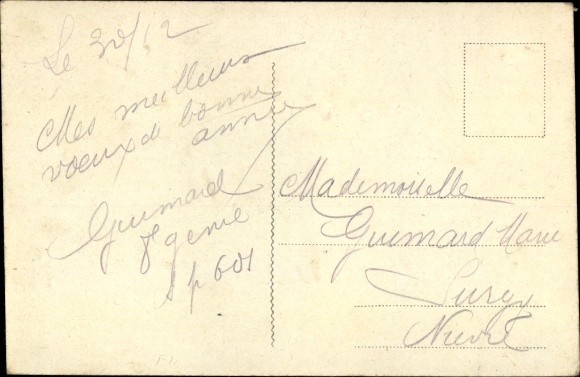 Le 30/12
Mes meilleurs
voeux de bonne
année
Guimard
8e genie
Sp 601
Mademoiselle
Guimard Marie
Surgy
Nièvre